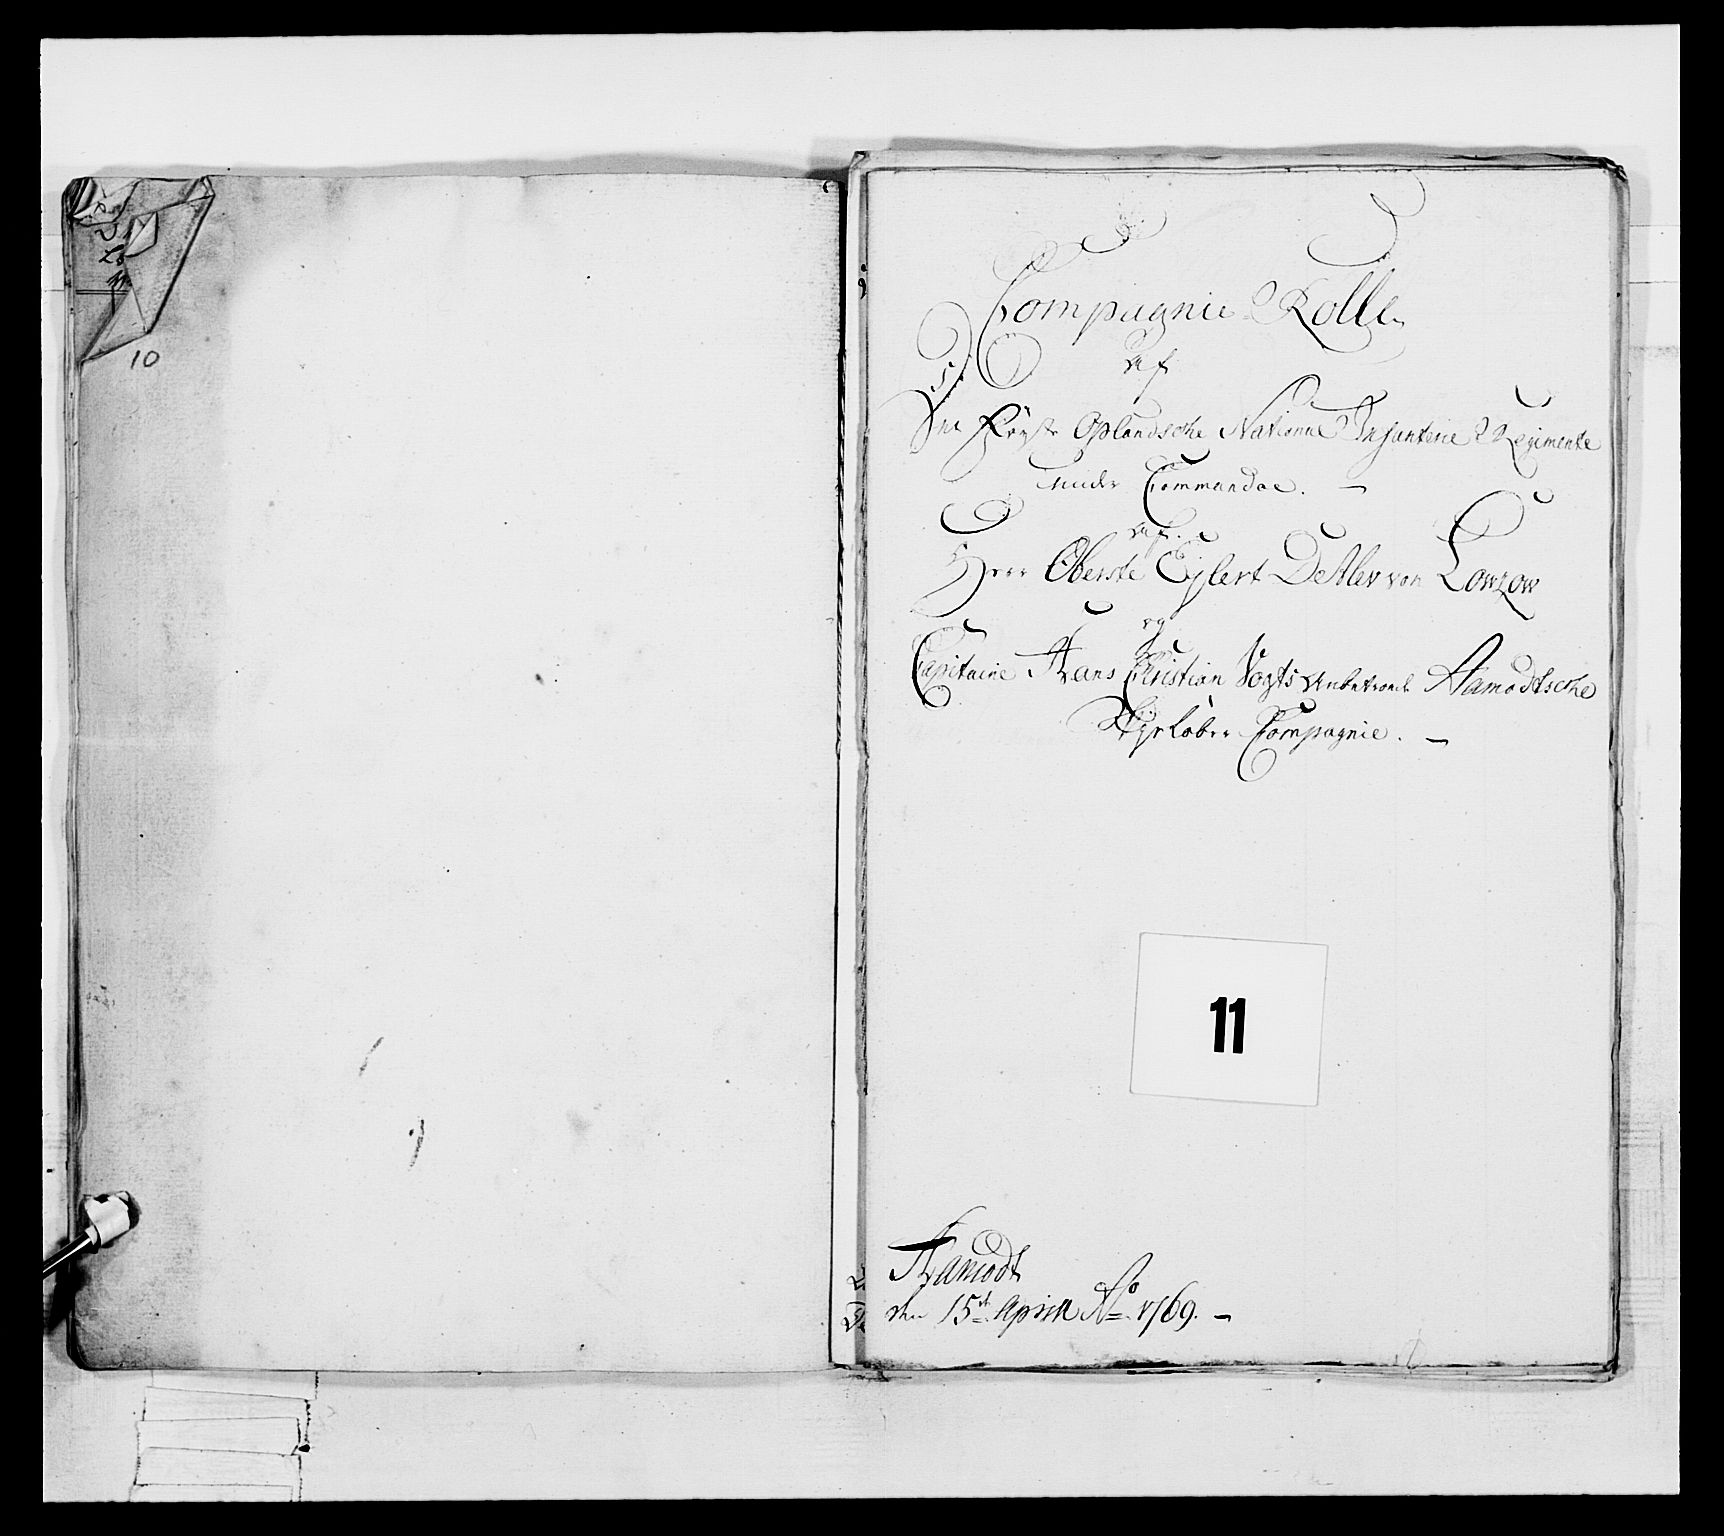 10
Compagnie Rolle
Af
Det Første Oplandsche National Infanterie Regimente
under Commandoe. —
Af.
Herr Oberste Eylert Detlev von Lowzow
og
Capitaine Hans Christian Vogts Anbetroede Aamodtsche
Skyeløber Compagnie. —
11
Aamodt
den 15de April Ao 1769. —